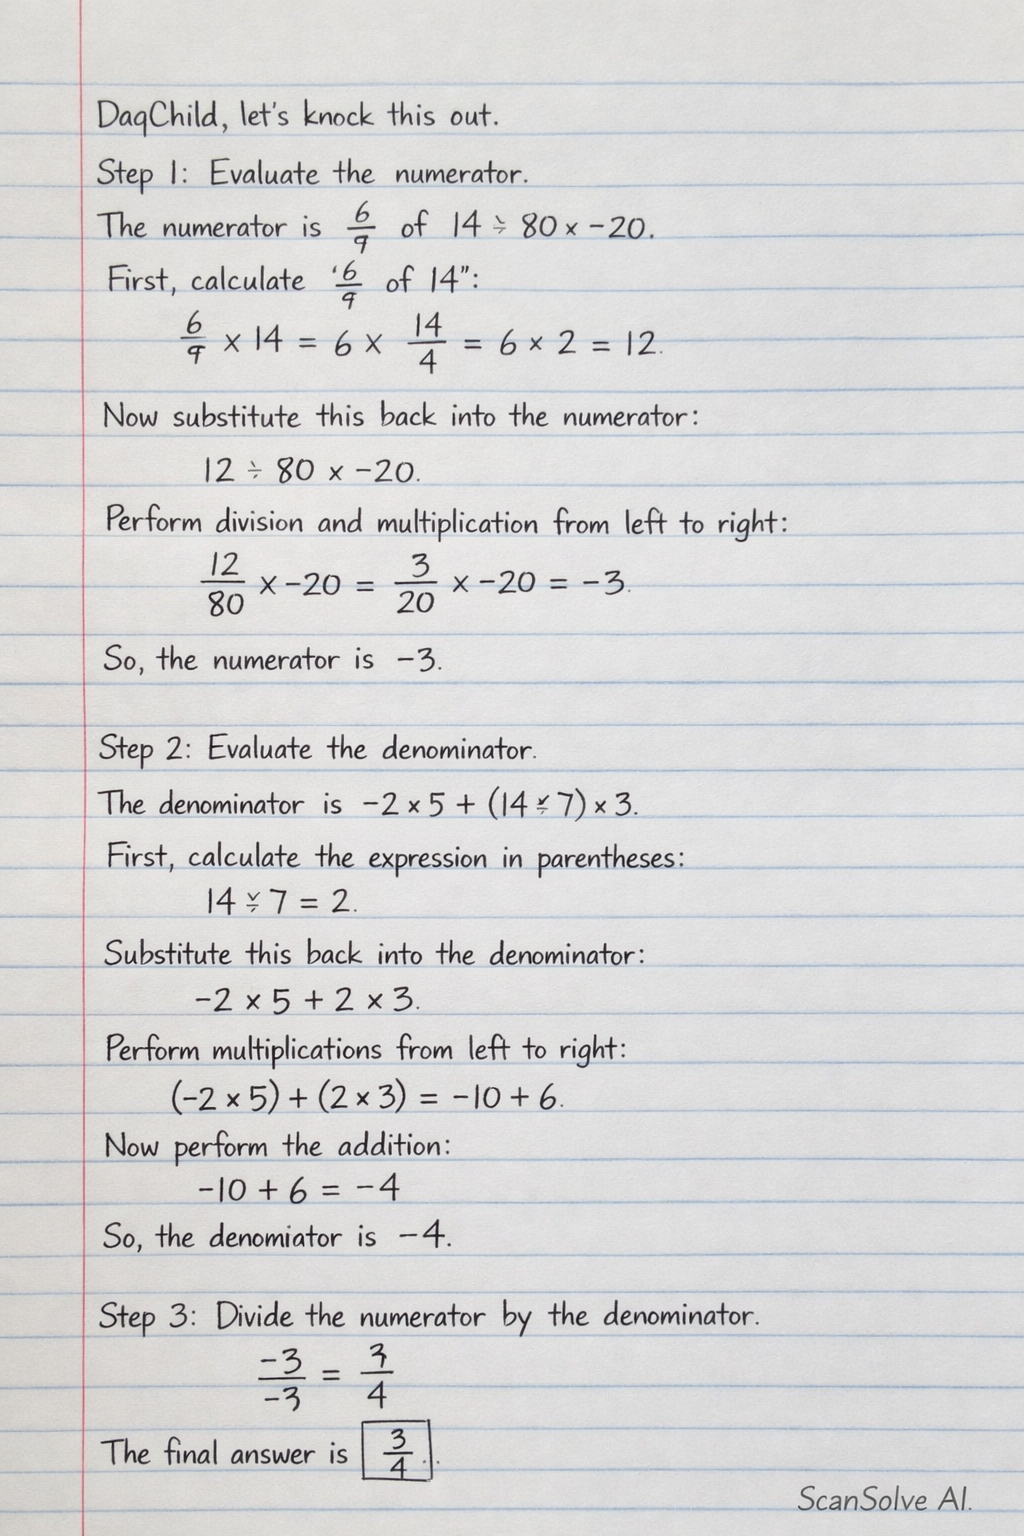 DaqChild, let's knock this out.
Step 1: Evaluate the numerator.
The numerator is 6/9 of 14 ÷ 80 × -20.
First, calculate '6/9 of 14":
6/9 × 14 = 6 × 14/4 = 6 × 2 = 12.
Now substitute this back into the numerator:
12 ÷ 80 × -20.
Perform division and multiplication from left to right:
12/80 × -20 = 3/20 × -20 = -3.
So, the numerator is -3.
Step 2: Evaluate the denominator.
The denominator is -2 × 5 + (14 ÷ 7) × 3.
First, calculate the expression in parentheses:
14 ÷ 7 = 2.
Substitute this back into the denominator:
-2 × 5 + 2 × 3.
Perform multiplications from left to right:
(-2 × 5) + (2 × 3) = -10 + 6.
Now perform the addition:
-10 + 6 = -4
So, the denomiator is -4.
Step 3: Divide the numerator by the denominator.
-3/-3 = 3/4
The final answer is 3/4.
ScanSolve AI.